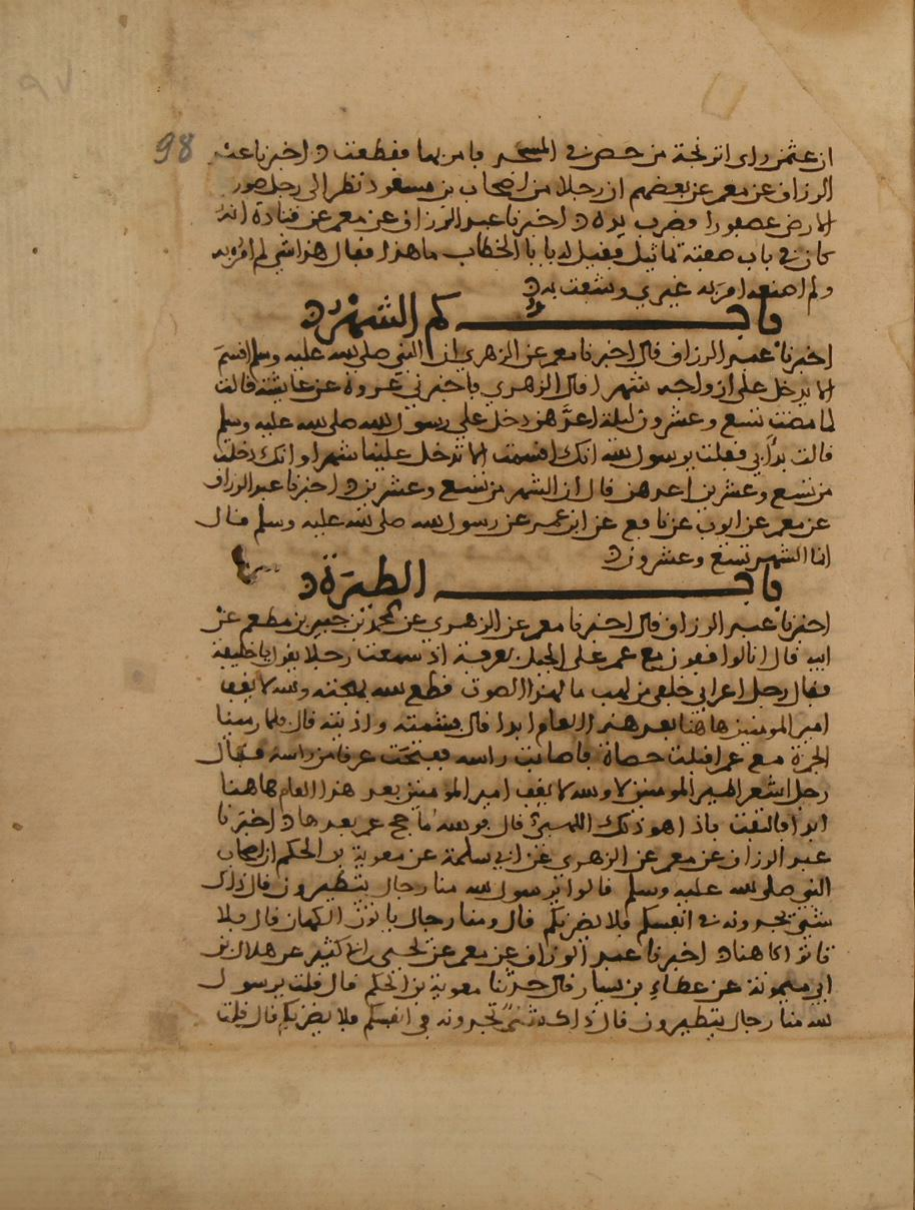 98
ان عثمن راى اترنجة من جص في المسجد فامر بها فقطعت ه اخبرنا عبد
الرزاق عن معمر عن بعضهم ان رجلا من اصحاب بن مسعود نظر الى رجل صور
الارض عصفورا فضرب يده ه اخبرنا عبد الرزاق عن معمر عن قتادة انه
كان في باب صفته تماثيل فقيل له يا با الخطاب ما هذا فقال هذا شي لم امر به
ولم اصنعه امر به غيري وشنعت به ه
باب كم الشهر ه
اخبرنا عبد الرزاق قال اخبرنا معمر عن الزهري ان النبي صلى الله عليه وسلم اقسم
الا يدخل على ازواجه شهرا قال الزهري فاخبرني عروة عن عايشة قالت
لما مضت تسع وعشرون ليلة اعدهن دخل علي رسول الله صلى الله عليه وسلم
قالت بدا بي فقلت يرسول الله انك اقسمت الا تدخل علينا شهرا وانك دخلت
من تسع وعشرين اعدهن قال ان الشهر من تسع وعشرين ه اخبرنا عبد الرزاق
عن معمر عن ايوب عن نافع عن ابن عمر عن رسول الله صلى الله عليه وسلم قال
انما الشهر تسع وعشرون ه
باب الطيرة ه
اخبرنا عبد الرزاق قال اخبرنا معمر عن الزهري عن محمد بن جبير بن مطعم عن
ابيه قال انا لواقفون مع عمر على الجبل بعرفة اذ سمعت رجلا يقول يا خليفة
فقال رجل اعرابي خلفي من لهب ما لهذا الصوت قطع الله لهجته والله لا يقف
امير المومنين هاهنا بعد هذا العام ابدا قال فشتمته واذيته قال فلما رمينا
الجمرة مع عمر اقبلت حصاة فاصابت راسه ففتحت عرقا من راسه فقال
رجل اشعر امير المومنين لا والله لا يقف امير المومنين بعد هذا العام هاهنا
ابدا فالتفت فاذا هو ذلك اللهبي قال فوالله ما حج عمر بعدها ه اخبرنا
عبد الرزاق عن معمر عن الزهري عن ابي سلمة عن معوية بن الحكم ان اصحاب
النبي صلى الله عليه وسلم قالوا يرسول الله منا رجال يتطيرون قال ذلك
شي تجدونه في انفسكم فلا يضرنكم قال ومنا رجال ياتون الكهان قال فلا
تاتوا كاهنا ه اخبرنا عبد الرزاق عن معمر عن يحيى بن ابي كثير عن هلال بن
ابي ميمونة عن عطاء بن يسار قال حدثنا معوية بن الحكم قال قلت يرسول
الله منا رجال يتطيرون قال ذلك شي تجدونه في انفسكم فلا يضرنكم قال قلت